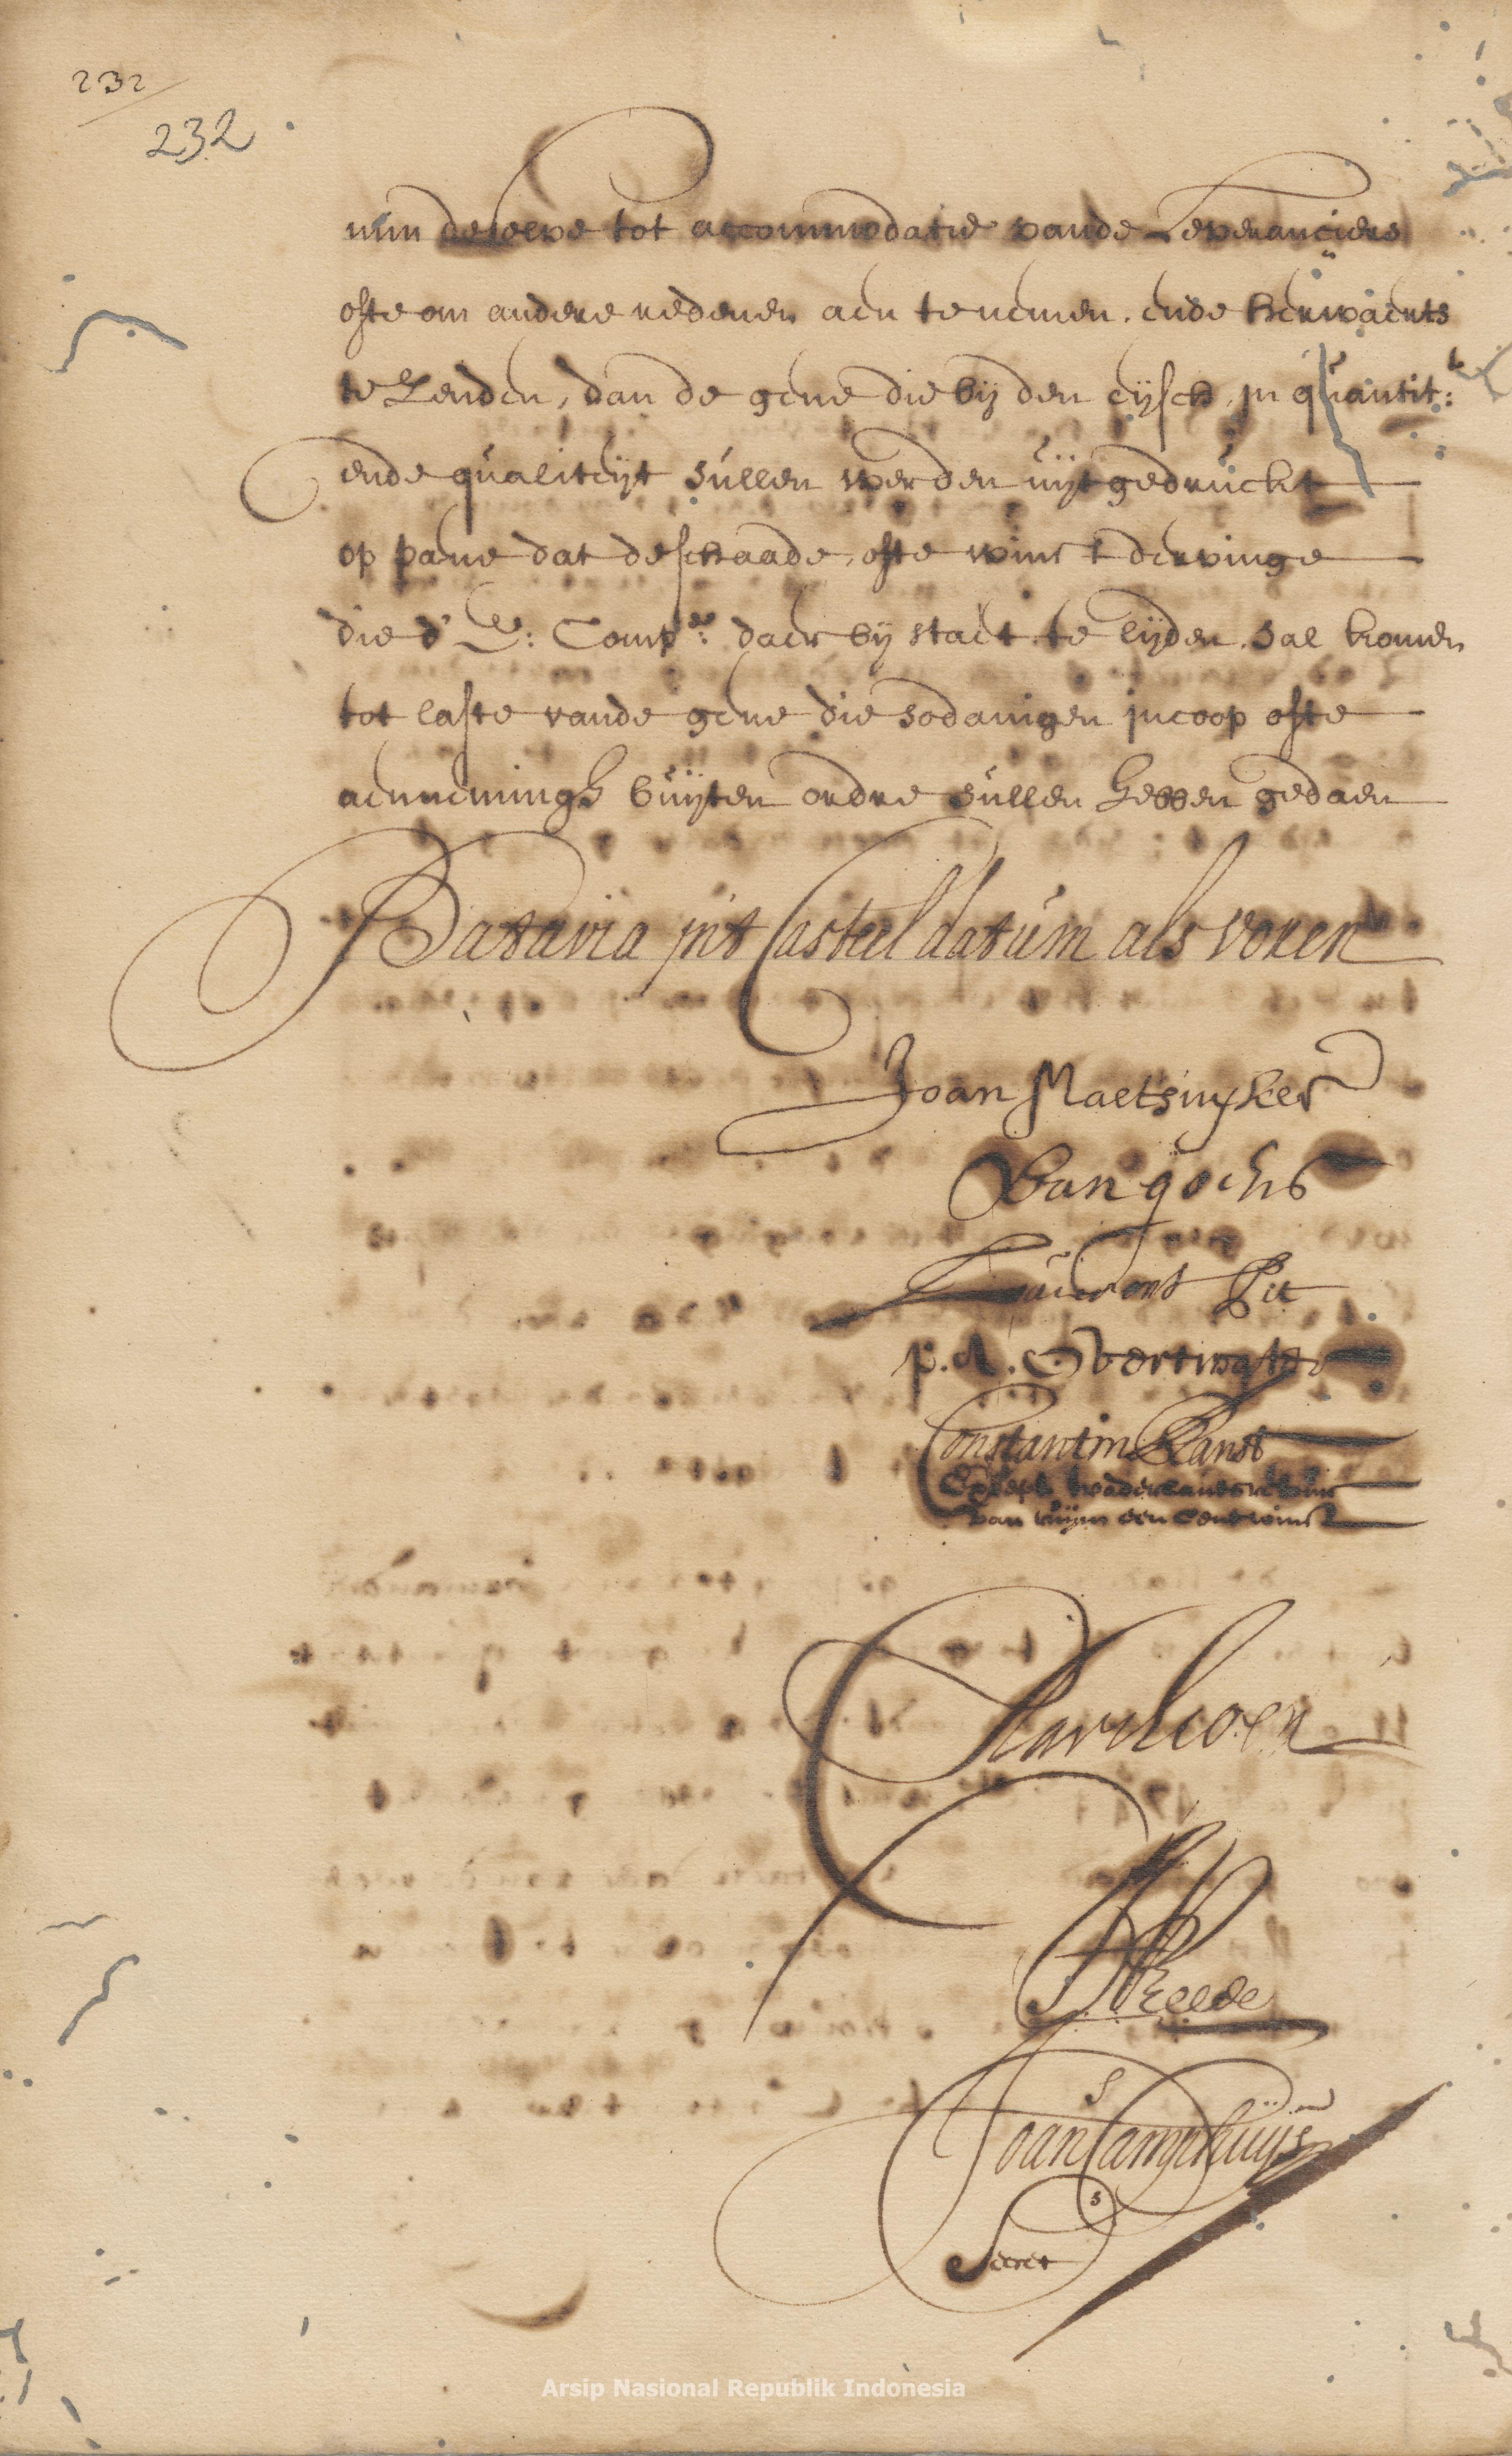 232
232
min deselve tot accommodatie vande Leveranciers
ofte om andere redenen aen te nemen, ende herwaerts
te Zenden, dan de gene die bij den eijsch in quantit:t
ende qualiteijt sullen werden uijtgedruckt
op pane dat de schaade, ofte winst dervinge
die d' E: Compe: daer bij staet te lijden, sal komen
tot laste vande gene die sodanigen incoop ofte
aenneemingh buijten ordre sullen hebben gedaen
Batavia int Casteel datum als voren
Joan Maetsuyker
Van goens
Laurens Pit
P. A. Overtwater
Constantin Ranst
van ruijm een Cent winst
Pavilioen
Reede
Joan Camphuijs
Secret
Arsip Nasional Republik Indonesia